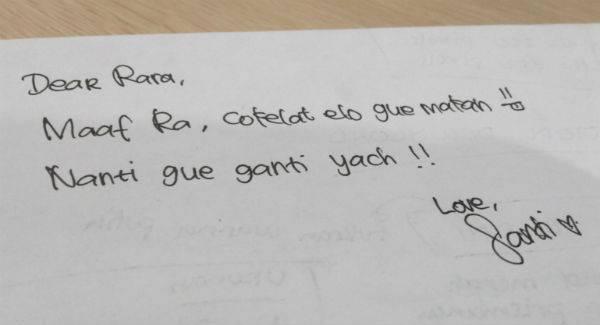 Dear Rara,
Maaf Ra, cokelat elo gue makan !!
Nanti gue ganti yach !!
Love,
Santi